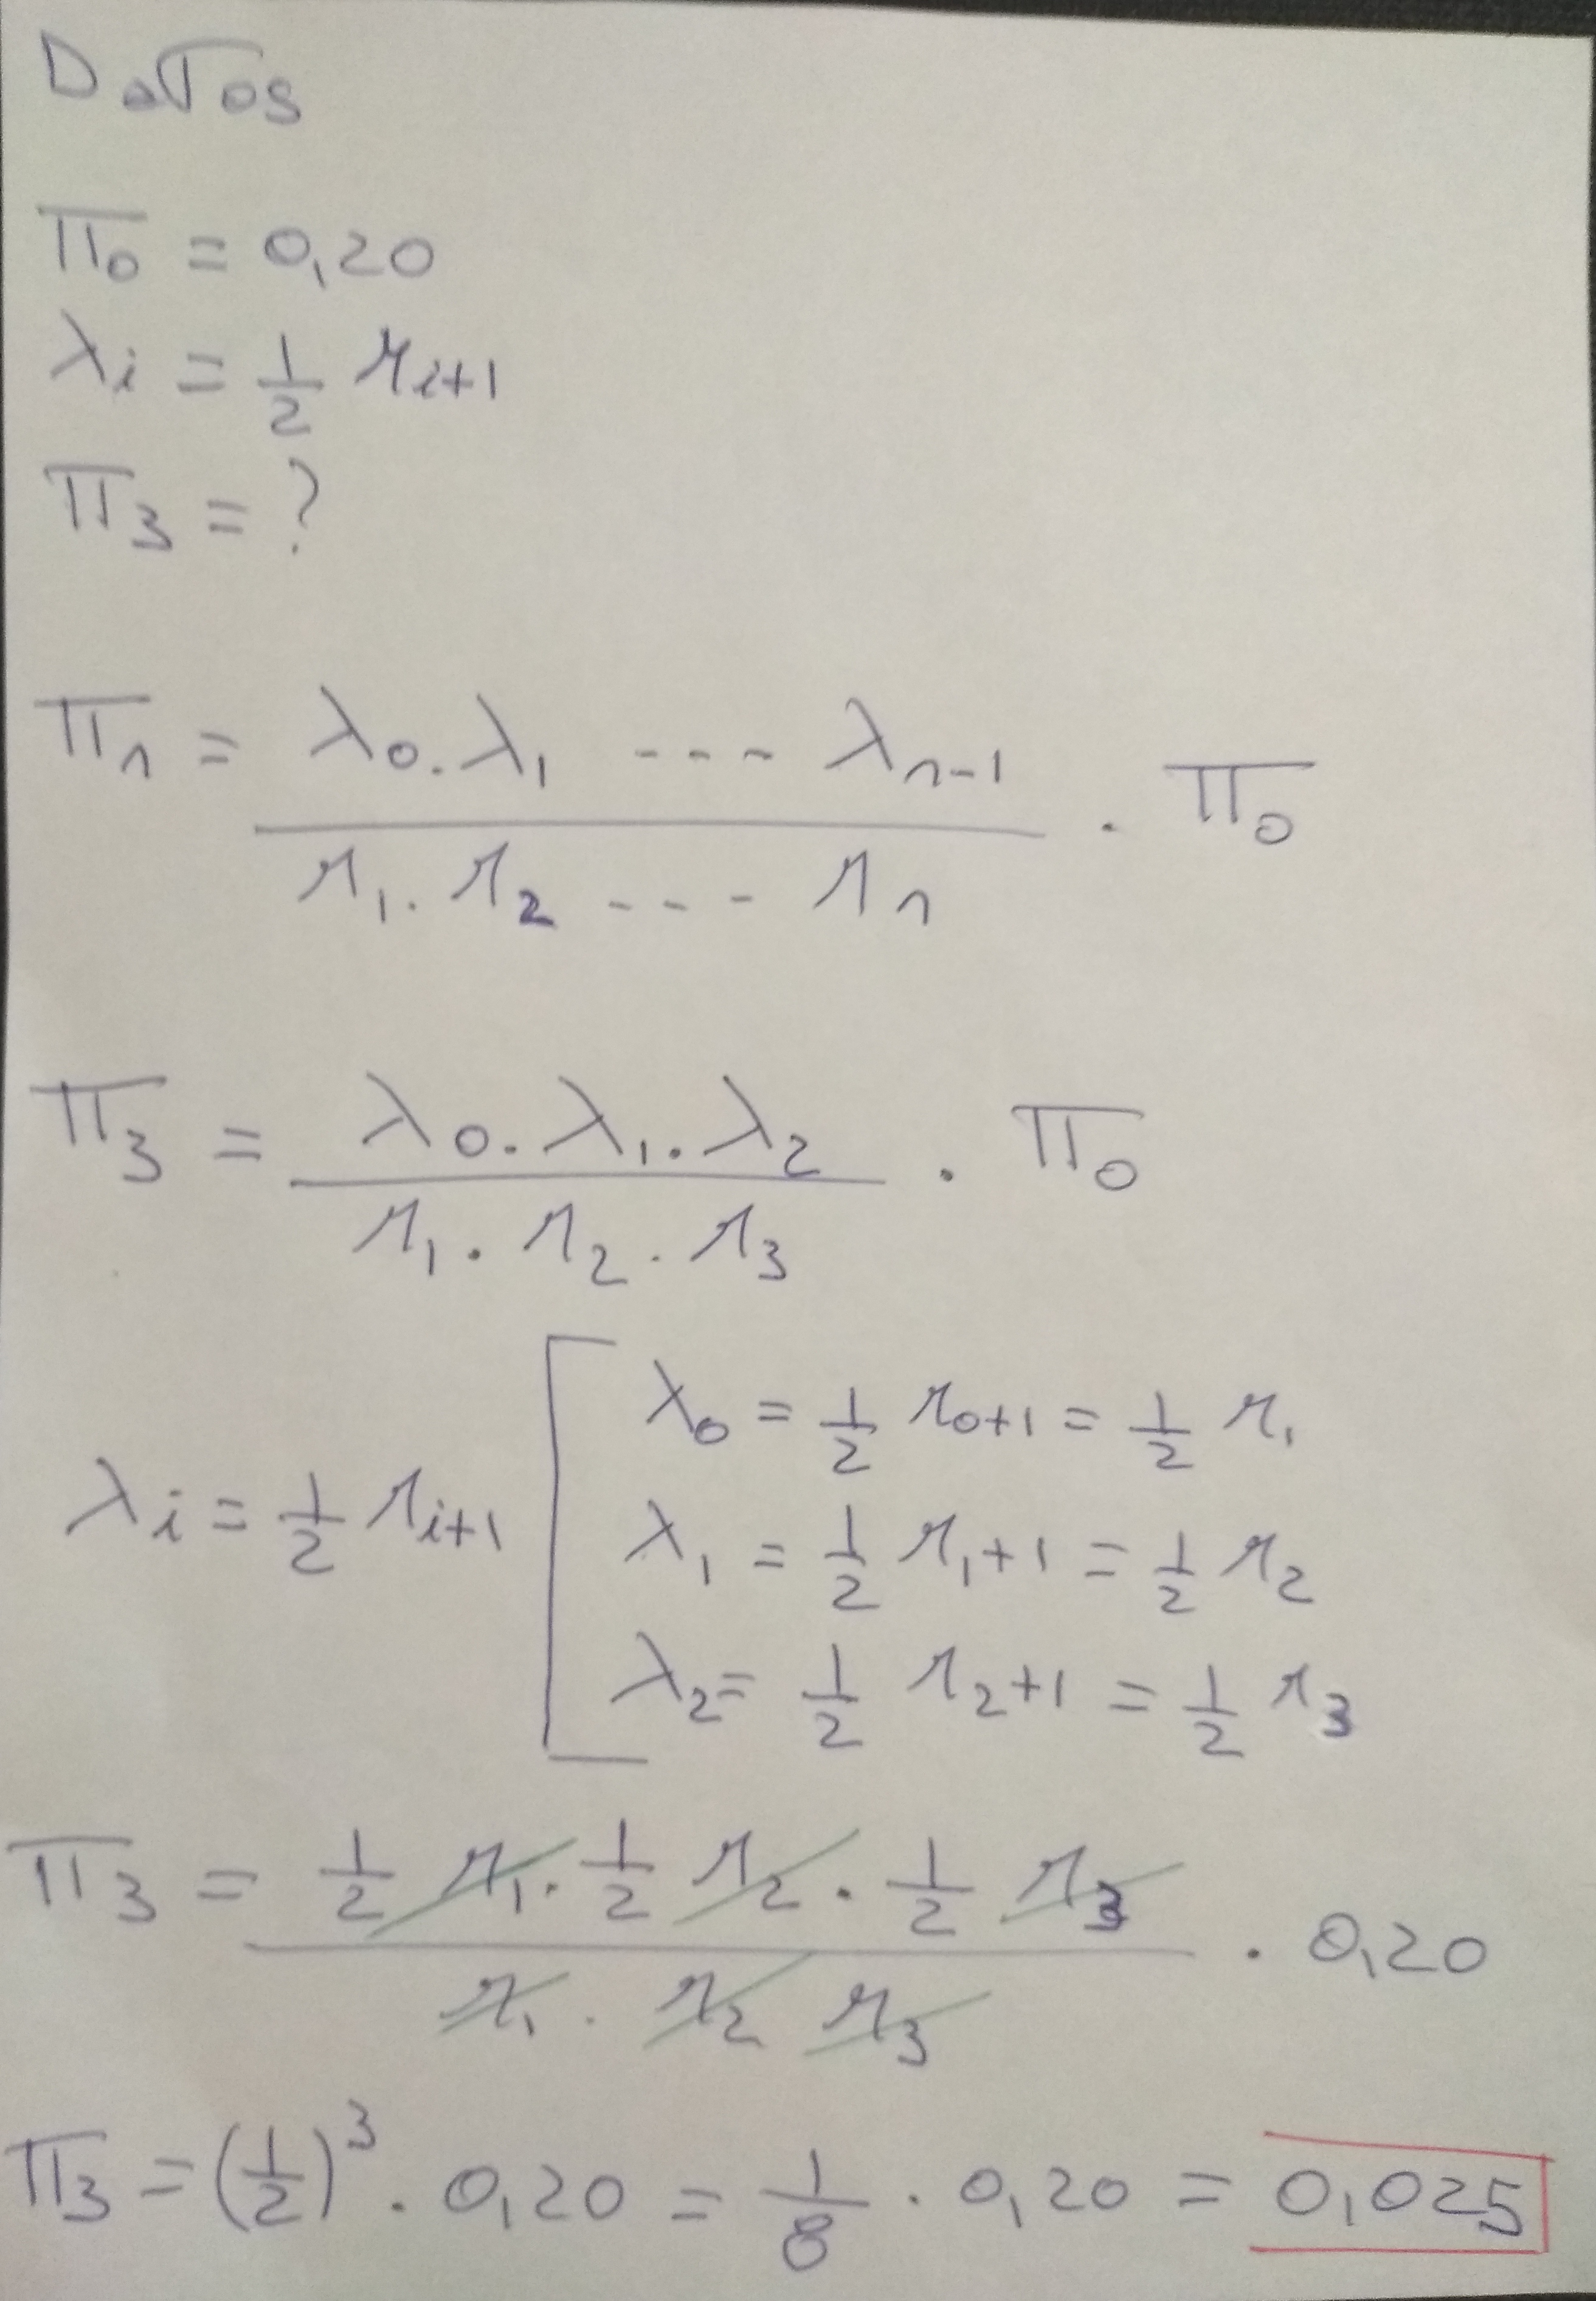 Datos
Π₀ = 0,20
λi = 1/2 μi+1
Π₃ = ?
Πn = (λ₀ . λ₁ ---- λn-1) / (μ₁ . μ₂ ---- μn) . Π₀
Π₃ = (λ₀ . λ₁ . λ₂) / (μ₁ . μ₂ . μ₃) . Π₀
λ₀ = 1/2 μ₀+1 = 1/2 μ₁
λi = 1/2 μi+1 [ λ₁ = 1/2 μ₁+1 = 1/2 μ₂
λ₂ = 1/2 μ₂+1 = 1/2 μ₃
Π₃ = (1/2 μ₁ . 1/2 μ₂ . 1/2 μ₃) / (μ₁ . μ₂ μ₃) . 0,20
Π₃ = (1/2)³ . 0,20 = 1/8 . 0,20 = 0,025